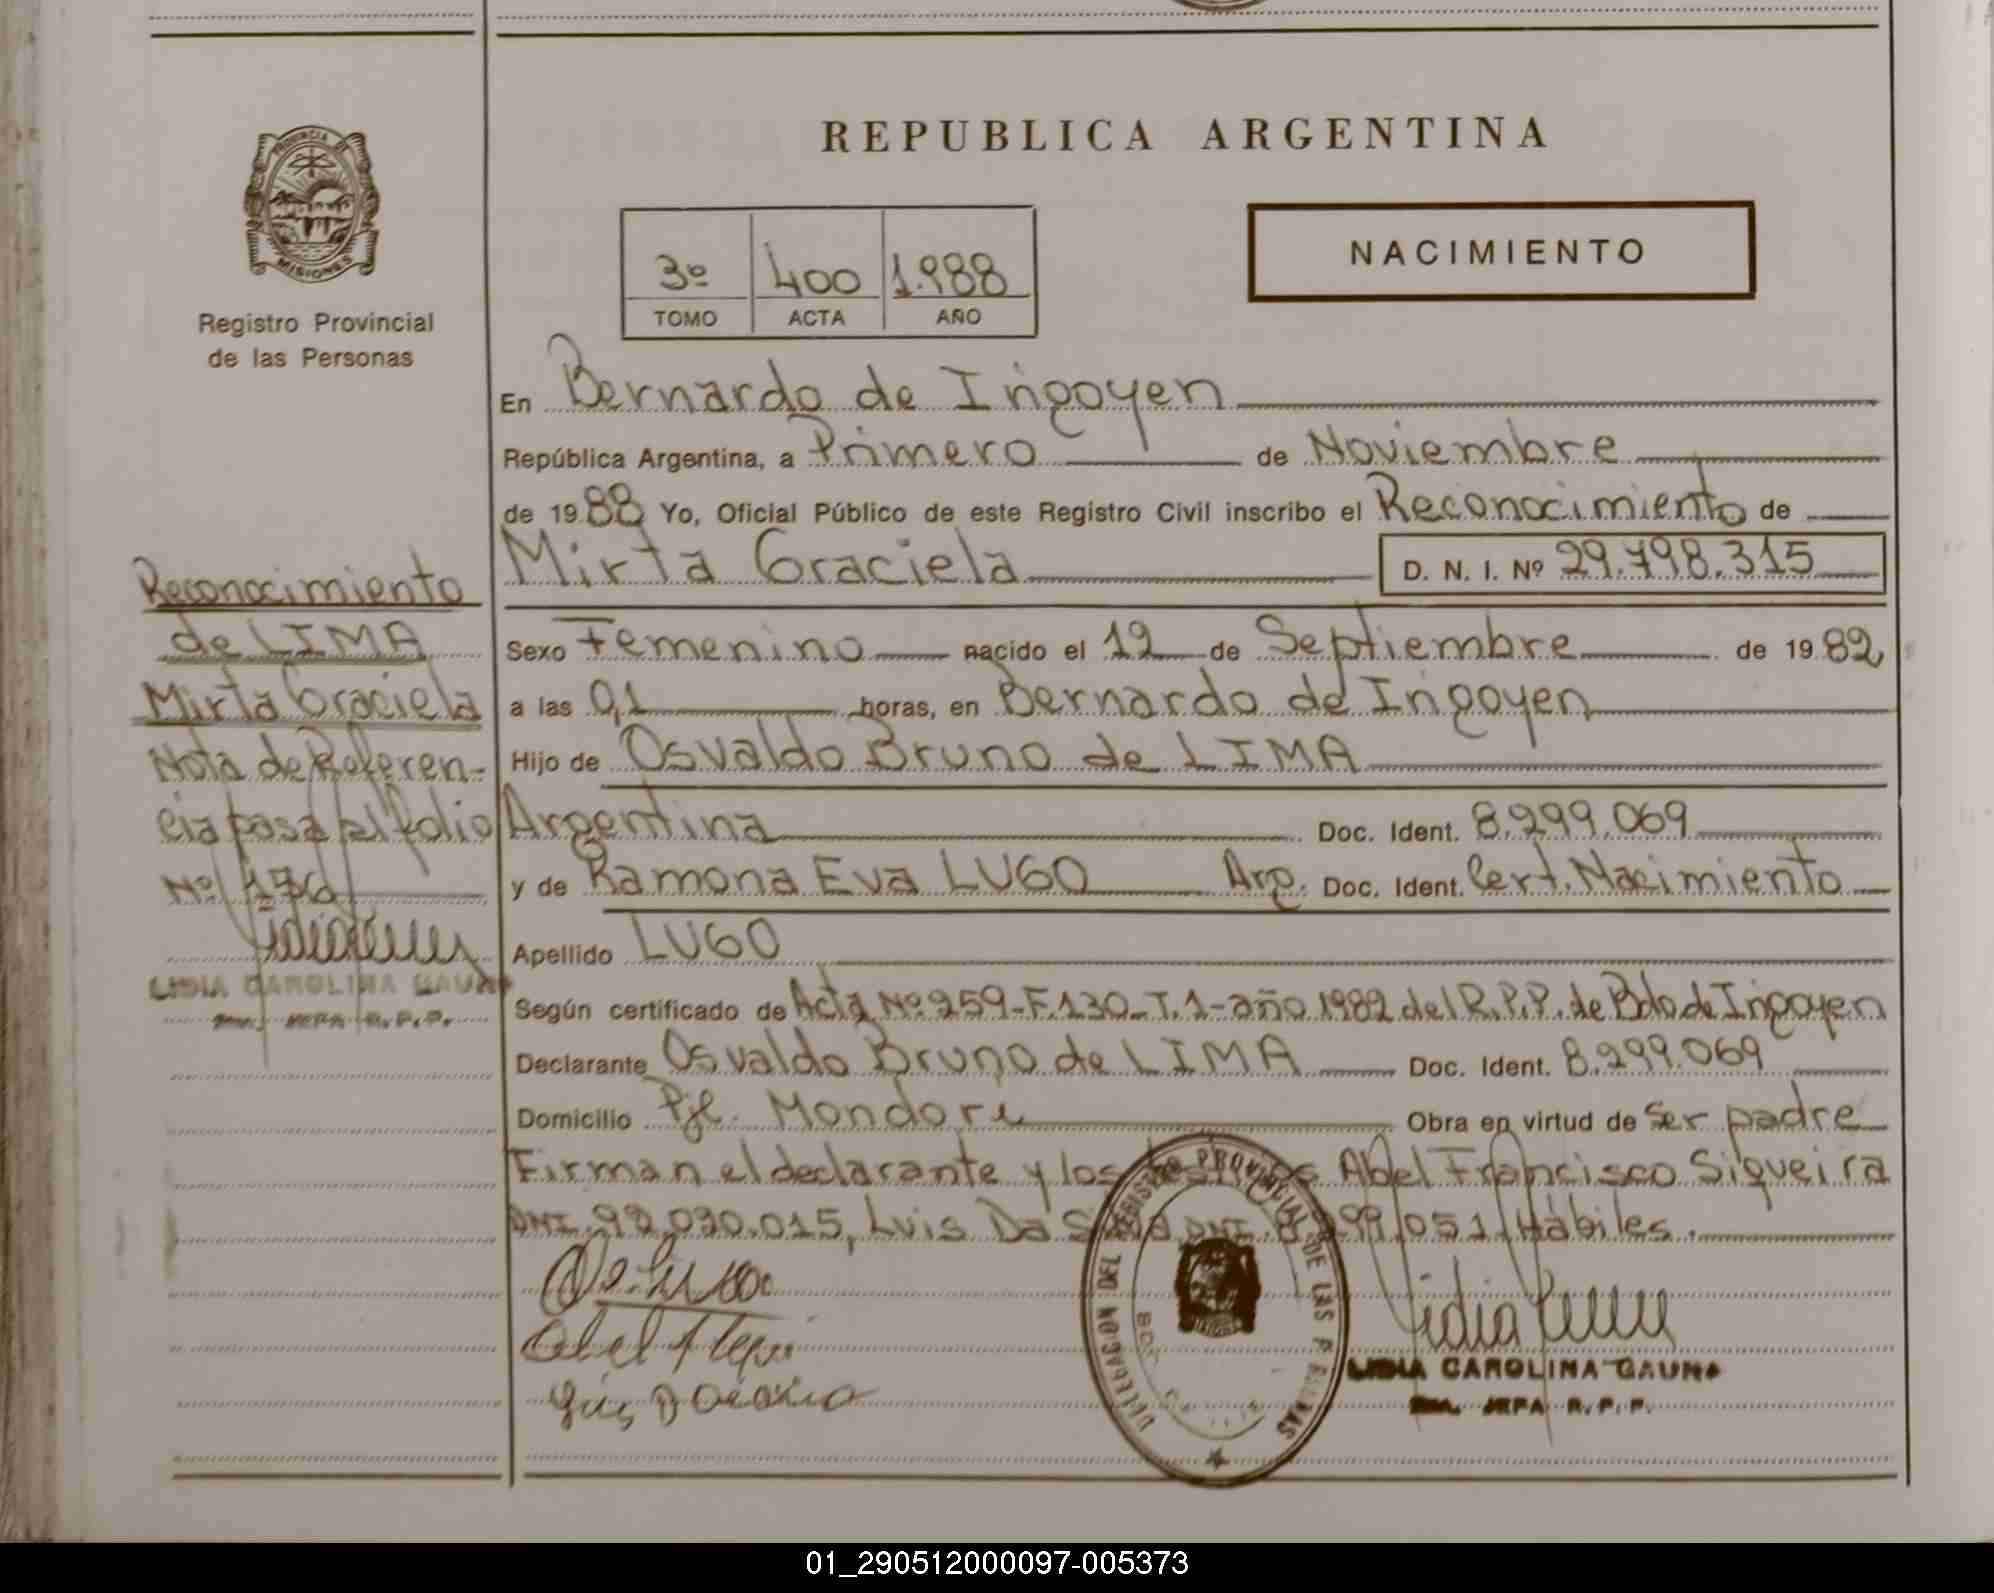 PROVINCIA DE
MISIONES
Registro Provincial
de las Personas
REPUBLICA ARGENTINA
3º 400 1.988
TOMO ACTA AÑO
NACIMIENTO
En Bernardo de Irigoyen
República Argentina, a Primero de Noviembre
de 1988 Yo, Oficial Público de este Registro Civil inscribo el Reconocimiento de
Mirta Graciela D. N. I. Nº 29.798.315
Sexo Femenino nacido el 12 de Septiembre de 1982,
a las 0,1 horas, en Bernardo de Irigoyen
Hijo de Osvaldo Bruno de LIMA
Argentina Doc. Ident. 8.299.069
y de Ramona Eva LUGO Arg. Doc. Ident. Cert. Nacimiento
Apellido LUGO
Según certificado de Acta Nº 259-F.130-T.1-año 1982 del R.P.P. de Bdo de Irigoyen
Declarante Osvaldo Bruno de LIMA Doc. Ident. 8.299.069
Domicilio Pje. Mondori Obra en virtud de Ser padre
Firman el declarante y los testigos Abel Francisco Siqueira
DNI. 92.030.015, Luis Da Silva DNI. 8.299.051 Hábiles.
DELEGACION DEL REGISTRO PROVINCIAL DE LAS PERSONAS
LIDIA CAROLINA GAUNA
JEFA R.P.P.
Reconocimiento
de LIMA
Mirta Graciela
Nota de Referen-
cia pasa al folio
Nº 176
LIDIA CAROLINA GAUNA
JEFA R.P.P.
01_290512000097-005373